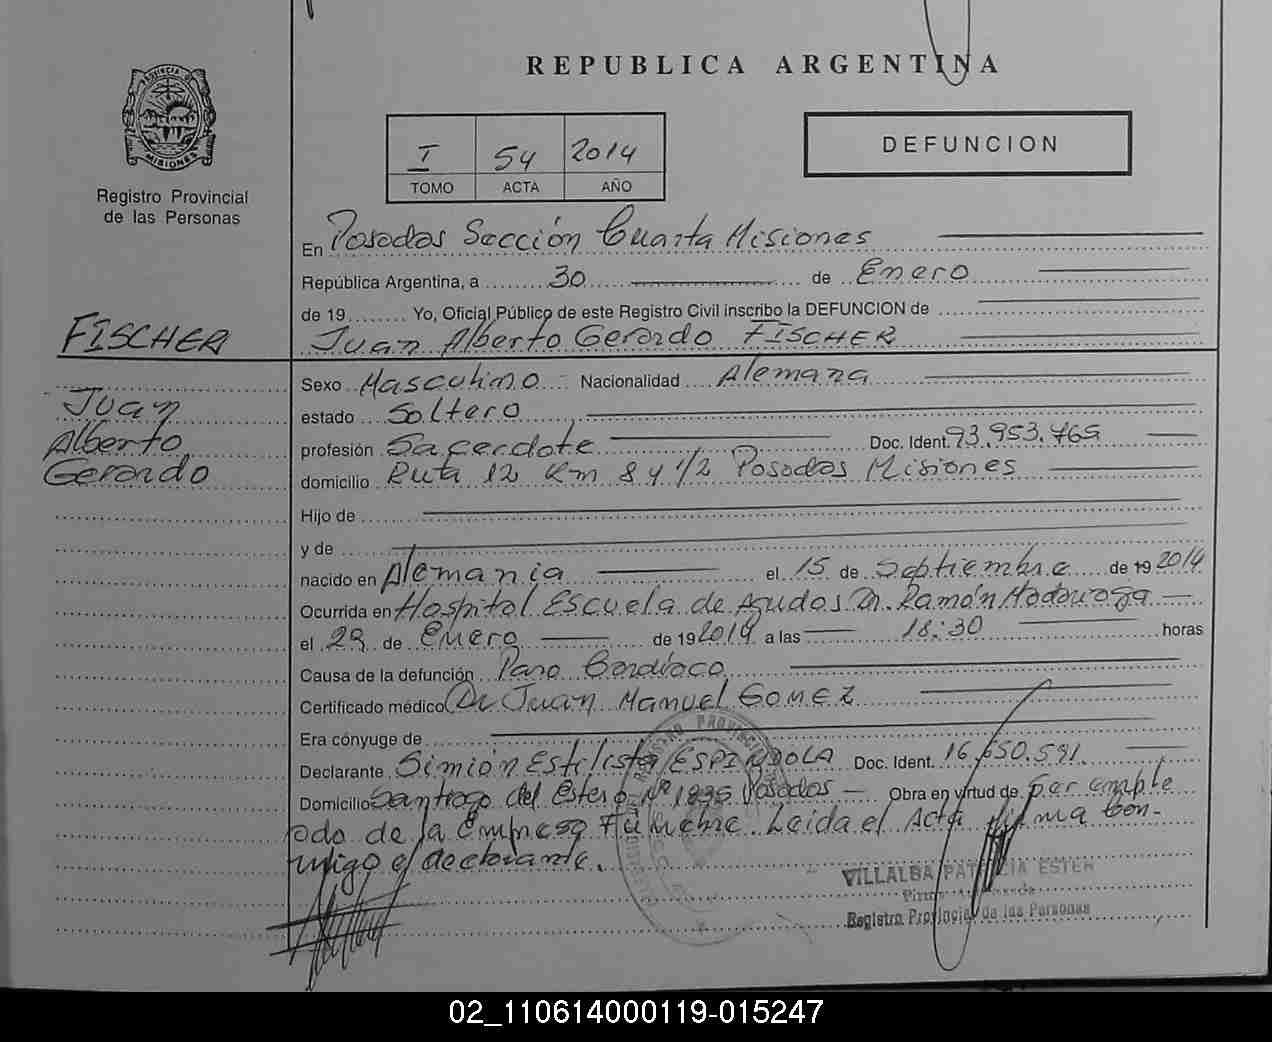 REPUBLICA ARGENTINA
PROVINCIA DE
MISIONES
Registro Provincial
de las Personas
I 54 2014
TOMO ACTA AÑO
DEFUNCION
En Posadas Sección Cuarta Misiones
República Argentina, a 30 de Enero
de 19 Yo, Oficial Público de este Registro Civil inscribo la DEFUNCION de
Juan Alberto Gerardo FISCHER
FISCHER
Juan
Alberto
Gerardo
Sexo Masculino Nacionalidad Alemana
estado Soltero
profesión Sacerdote Doc. Ident. 93.953.765
domicilio Ruta 12 Km 8 y 1/2 Posadas Misiones
Hijo de
y de
nacido en Alemania el 15 de Septiembre de 19 2014
Ocurrida en Hospital Escuela de Agudos Dr. Ramón Madariaga
el 29 de Enero de 19 2014 a las 18:30 horas
Causa de la defunción Paro Cardíaco
Certificado médico Dr Juan Manuel GOMEZ
Era cónyuge de
Declarante Simión Estilista ESPINDOLA Doc. Ident. 16.650.591
Domicilio Santiago del Estero Nº 1835 Posadas Obra en virtud de ser emple
ado de la Empresa Fúnebre. Leída el Acta firma con-
migo el declarante.
VILLALBA PATRICIA ESTER
Registro Provincial de las Personas
02_110614000119-015247